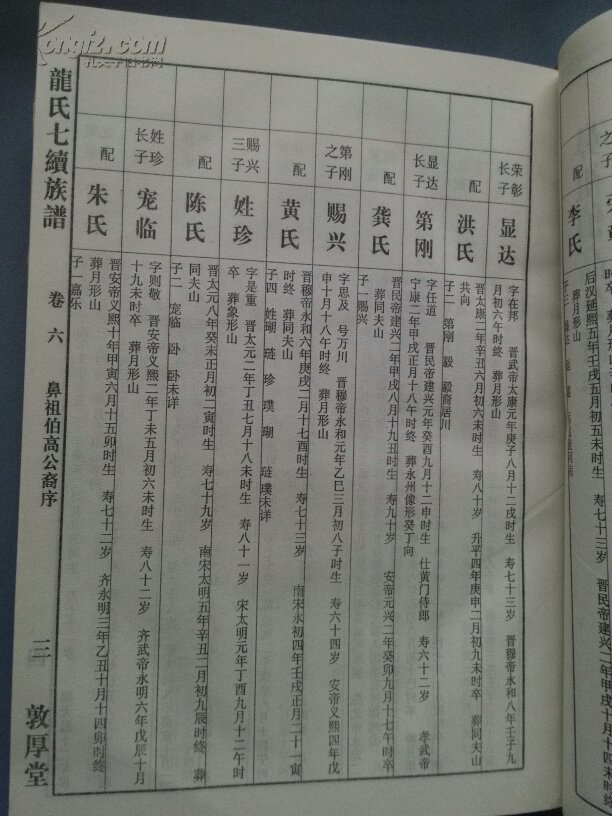 荣彰
长子
显达
字在邦 晋武帝太康元年庚子八月十二戌时生 寿七十三岁 晋穆帝永和八年壬子九
月初六午时终 葬月形山
配
洪氏
晋太康二年辛丑六月初六未时生 寿八十岁 升平四年庚申二月初九未时卒 葬同夫山
共向
子二 第刚 毅 毅裔居川
显达
长子
第刚
字任道 晋民帝建兴元年癸酉九月十二申时生 仕黄门侍郎 寿六十二岁 孝武帝
宁康二年甲戌正月十八午时终 葬永州像形癸丁向
配
龚氏
晋民帝建兴二年甲戌八月十九丑时生 寿九十岁 安帝元兴二年癸卯九月十七午时卒
葬同夫山
子一 赐兴
第刚
之子
赐兴
字思及 号万川 晋穆帝永和元年乙巳三月初八子时生 寿六十四岁 安帝义熙四年戊
申十月十八午时终 葬月形山
配
黄氏
晋穆帝永和六年庚戌二月十七酉时生 寿七十三岁 南宋永初四年壬戌正月二十 寅
时终 葬同夫山
子四 姓瑚 琏 珍 璞 瑚 琏璞未详
赐兴
三子
姓珍
字是重 晋太元二年丁丑七月十八未时生 寿八十一岁 宋太明元年丁酉九月十二午时
卒 葬象形山
配
陈氏
晋太元八年癸未正月初二寅时生 寿七十九岁 南宋太明五年辛丑二月初九辰时终 葬
同夫山
子二 宠临 卧 卧未详
姓珍
长子
宠临
字则敬 晋安帝义熙二年丁未五月初六未时生 寿八十二岁 齐武帝永明六年戊辰十月
十九未时卒 葬月形山
配
朱氏
晋安帝义熙十年甲寅六月十五卯时生 寿七十二岁 齐永明三年乙丑十月十四卯时终
葬月形山
子一嘉乐
龍氏七續族譜
卷六
鼻祖伯高公裔序
二
敦厚堂
之子
配
李氏
后汉延熙五年壬戌五月初五
葬月形山
kongfz.com
孔夫子旧书网